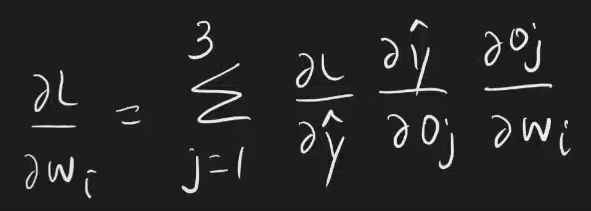 ∂L/∂w_i = Σ_{j=1}^{3} ∂L/∂ŷ ∂ŷ/∂O_j ∂O_j/∂w_i